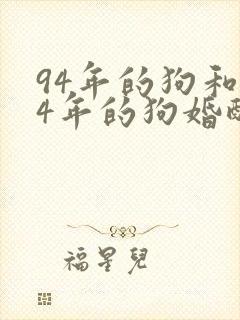 94年的狗和
4年的狗婚
福星兒